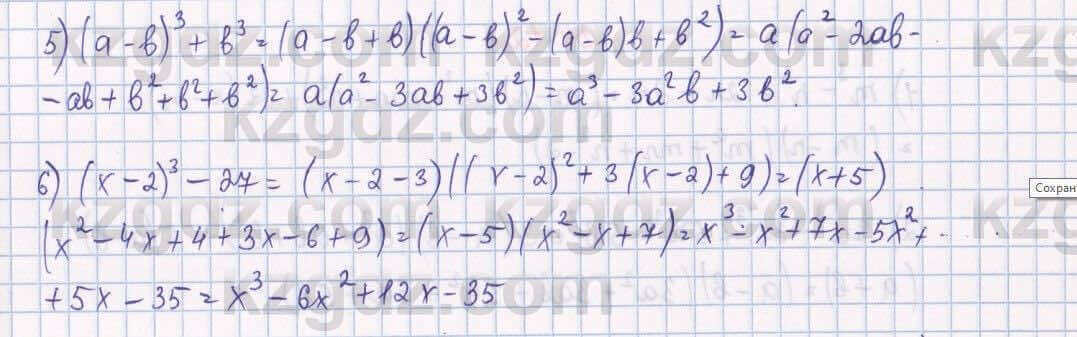 5) (a-b)³ + b³ = (a-b+b)((a-b)² - (a-b)b + b²) = a(a² - 2ab -
- ab + b² + b² + b²) = a(a² - 3ab + 3b²) = a³ - 3a²b + 3b².
6) (x-2)³ - 27 = (x-2-3)((x-2)² + 3(x-2) + 9) = (x+5)
Сохран
(x² - 4x + 4 + 3x - 6 + 9) = (x-5)(x² - x + 7) = x³ - x² + 7x - 5x² +
+ 5x - 35 = x³ - 6x² + 12x - 35
kzgdz.com